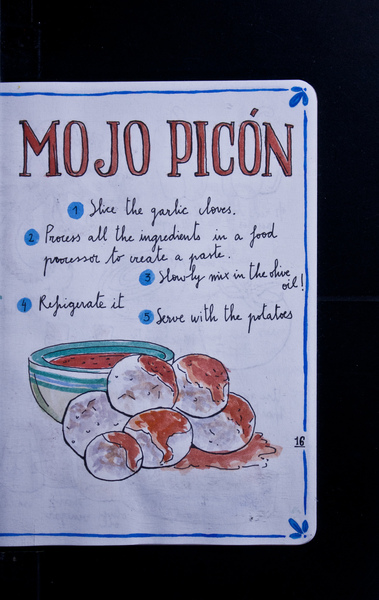 MOJO PICÓN
1 Slice the garlic cloves.
2 Process all the ingredients in a food
processor to create a paste.
3 Slowly mix in the olive
oil!
4 Refrigerate it
5 Serve with the potatoes
16